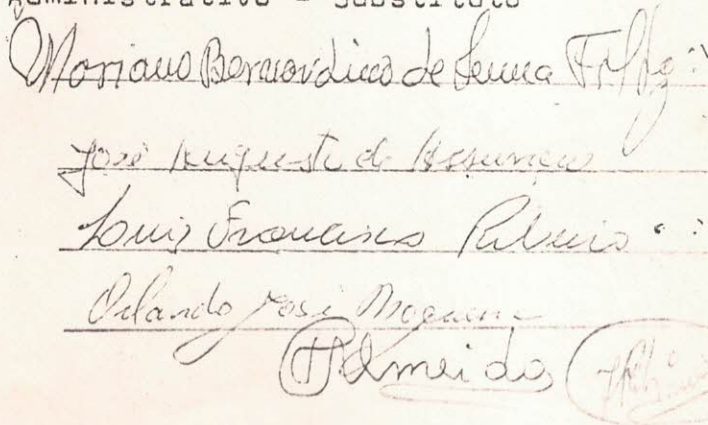 Administrativo - Substituto
Mariano Bernardino de Senna Filho
José Augusto de Assunção
Luiz Francisco Ribeiro
Orlando José
Almeida